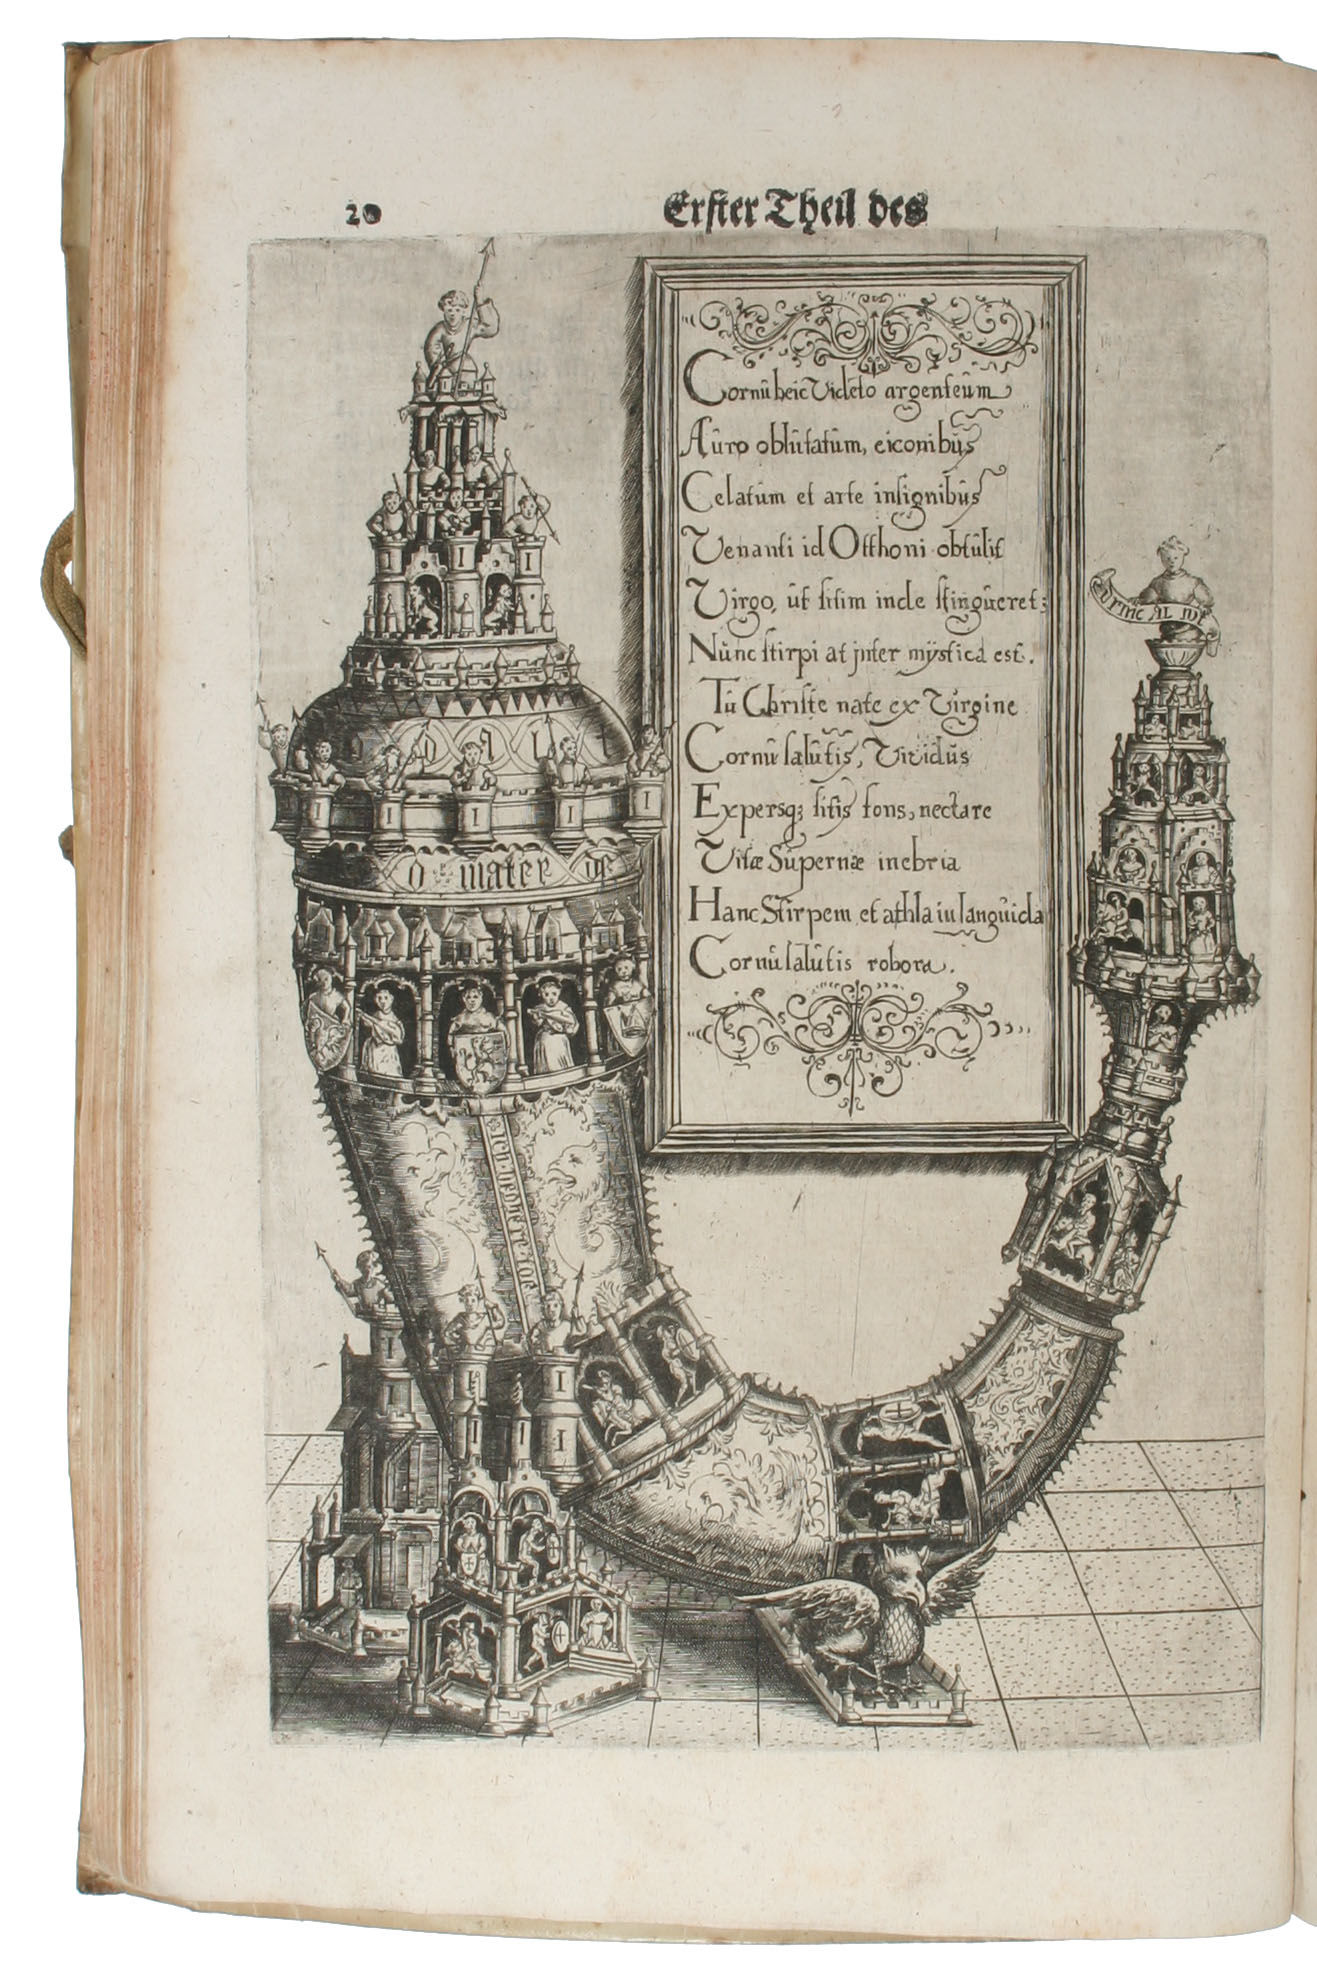 20
Erster Theil des
Cornû heic Videto argenteûm
Aûro oblûtatûm, eiconibûs
Celatûm et arte insignibûs
Venanti id Otthoni obtûlit
Virgo, ût sitim inde stingûeret;
Nûnc stirpi at inter mÿstica est.
Tû Christe nate ex Virgine
Cornû salûtis, Vividûs
Expersq; sitis fons, nectare
Vitæ Sûpernæ inebria
Hanc Stirpem et athla iu languida
Cornû salûtis robora.
o mater de
ich beghere
drinc AL wt